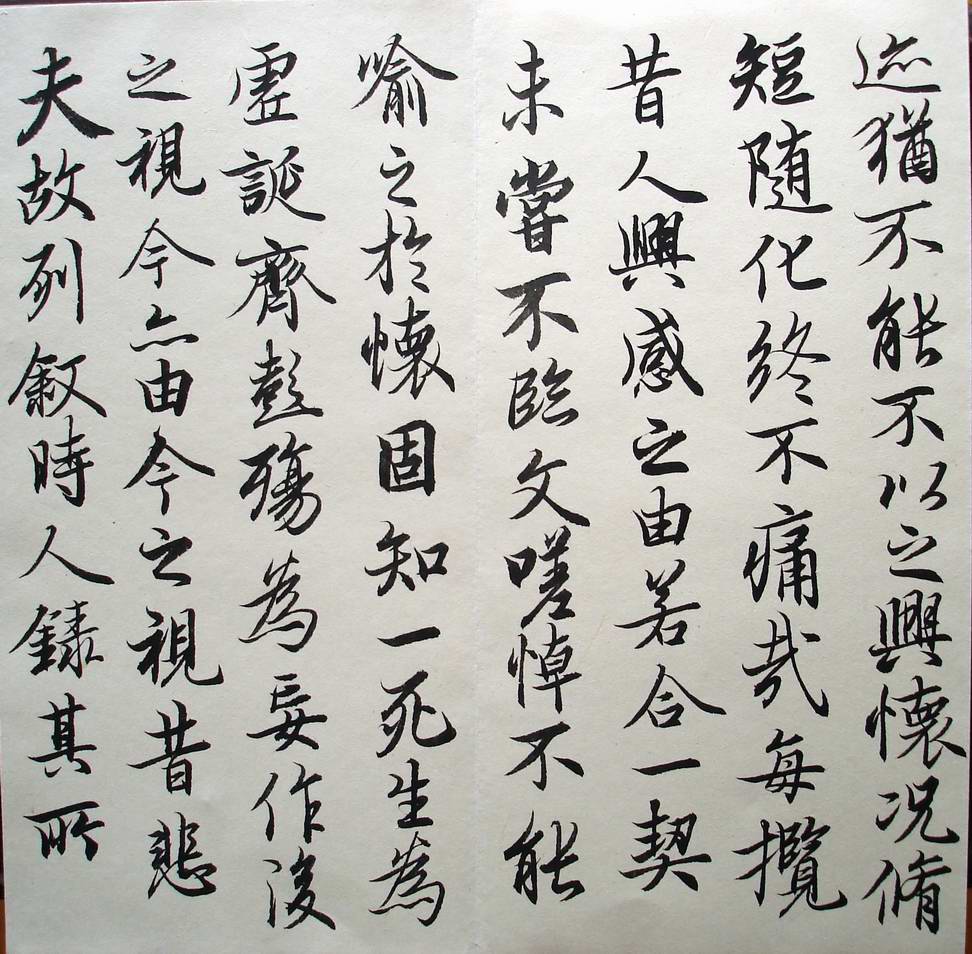 迹猶不能不以之興懷况脩
短随化終不痛哉每攬
昔人興感之由若合一契
未嘗不臨文嗟悼不能
喻之於懷固知一死生為
虛誕齊彭殤為妄作後
之視今亦由今之視昔悲
夫故列叙時人錄其所